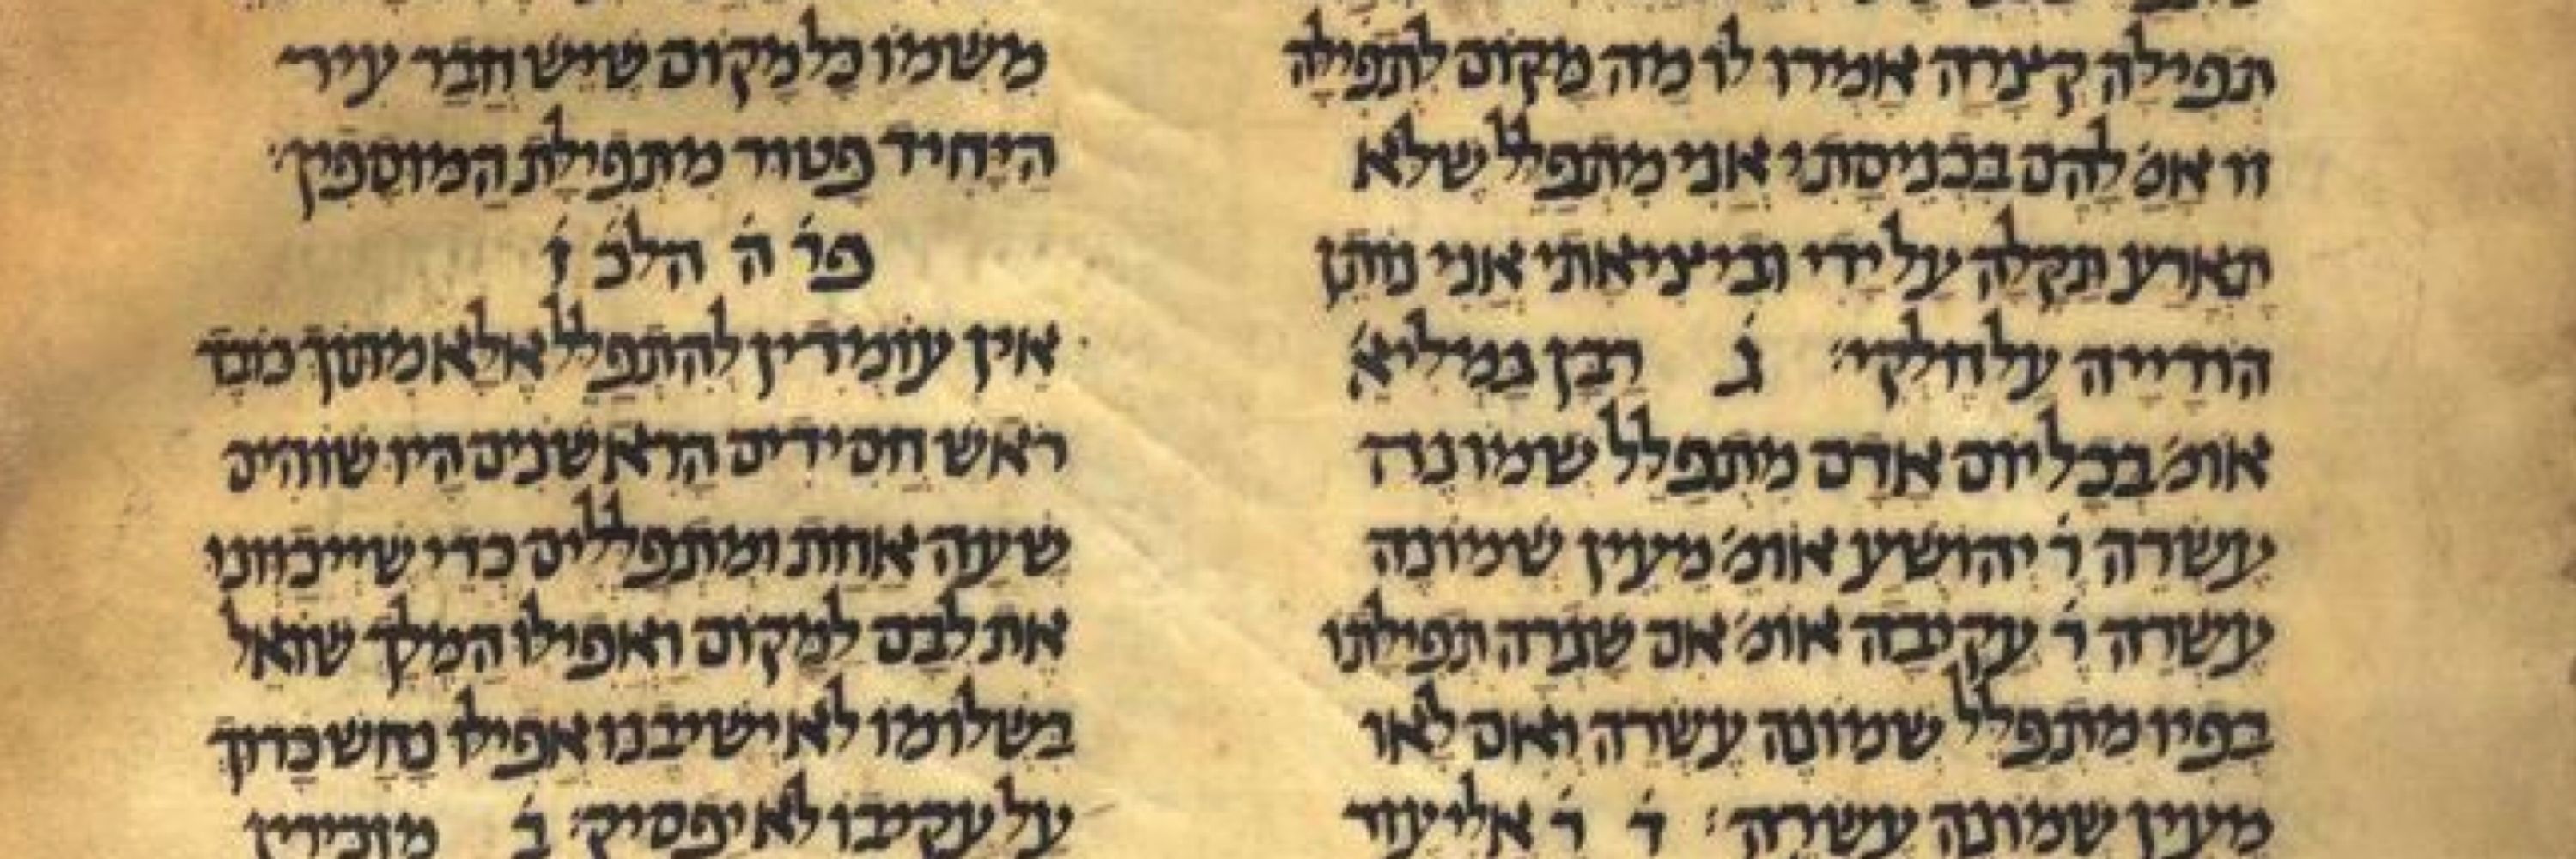 תפילה קצרה אמרו לו מה מקום לתפילה
זו אמ׳ להם בכניסתי אני מתפלל שלא
תארע תקלה על ידי וביציאתי אני נותן
הודייה על חלקי: ג רבן גמליא׳
אומ׳ בכל יום אדם מתפלל שמונה
עשרה ר׳ יהושע אומ׳ מעין שמונה
עשרה ר׳ עקיבה אומ׳ אם שגרה תפילתו
בפיו מתפלל שמונה עשרה ואם לאו
מעין שמונה עשרה: ד ר׳ אליעזר
משמו כל מקום שיש חבר עיר
היחיד פטור מתפילת המוספין:
פר׳ ה׳ הלכ׳ ז׳
אין עומידין להתפלל אלא מתוך כובד
ראש חסידים הראשנים היו שוהים
שעה אחת ומתפללים כדי שייכוונו
את לבם למקום ואפילו המלך שואל
בשלומו לא ישיבנו אפילו נחש כרוך
על עקיבו לא יפסיק: ב מזכירין